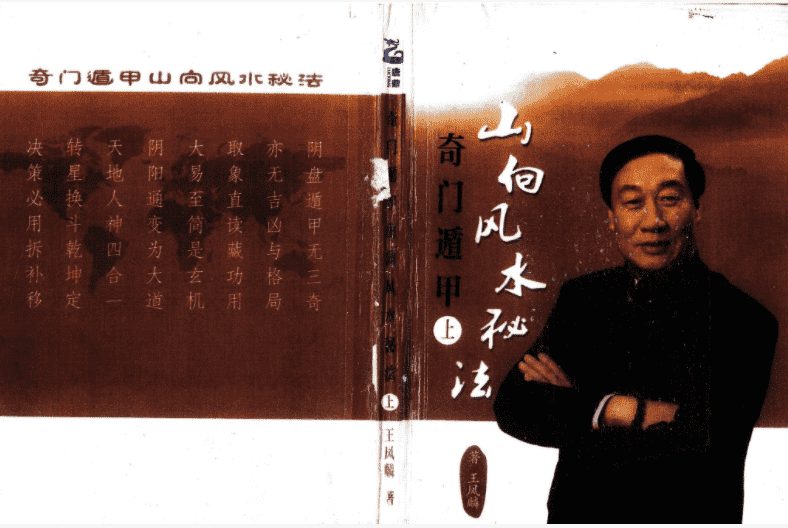 奇门遁甲山向风水秘法
阴盘遁甲无三奇
亦无吉凶与格局
取象直读藏功用
大易至简是玄机
阴阳通变为大道
天地人神四合一
转星换斗乾坤定
决策必用拆补移
奇门 风水秘法 上 王凤麟 著
山向风水秘法
奇门遁甲 上
著 王凤麟